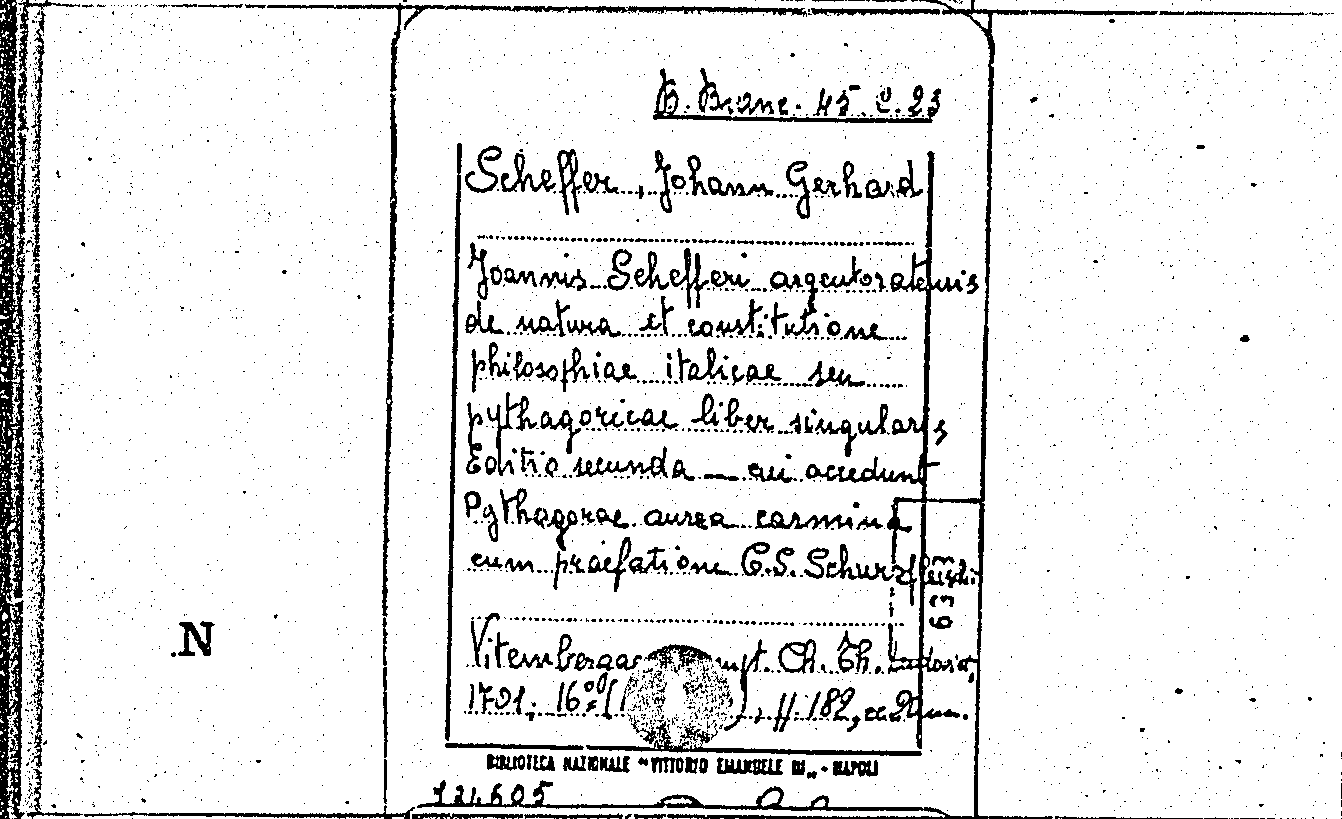 B. Branc. 45. C. 23
Scheffer, Johann Gerhard
Joannis Schefferi argentoratensis
de natura et constitutione
philosophiae italicae seu
pythagoricae liber singularis
Editio secunda — cui accedunt
Pythagorae aurea carmina
cum praefatione C.S. Schurzfleischi
693
Vitembergae Ch. Th.
1701, 16° ), ff. 182,
N
BIBLIOTECA NAZIONALE "VITTORIO EMANUELE III„ - NAPOLI
121605